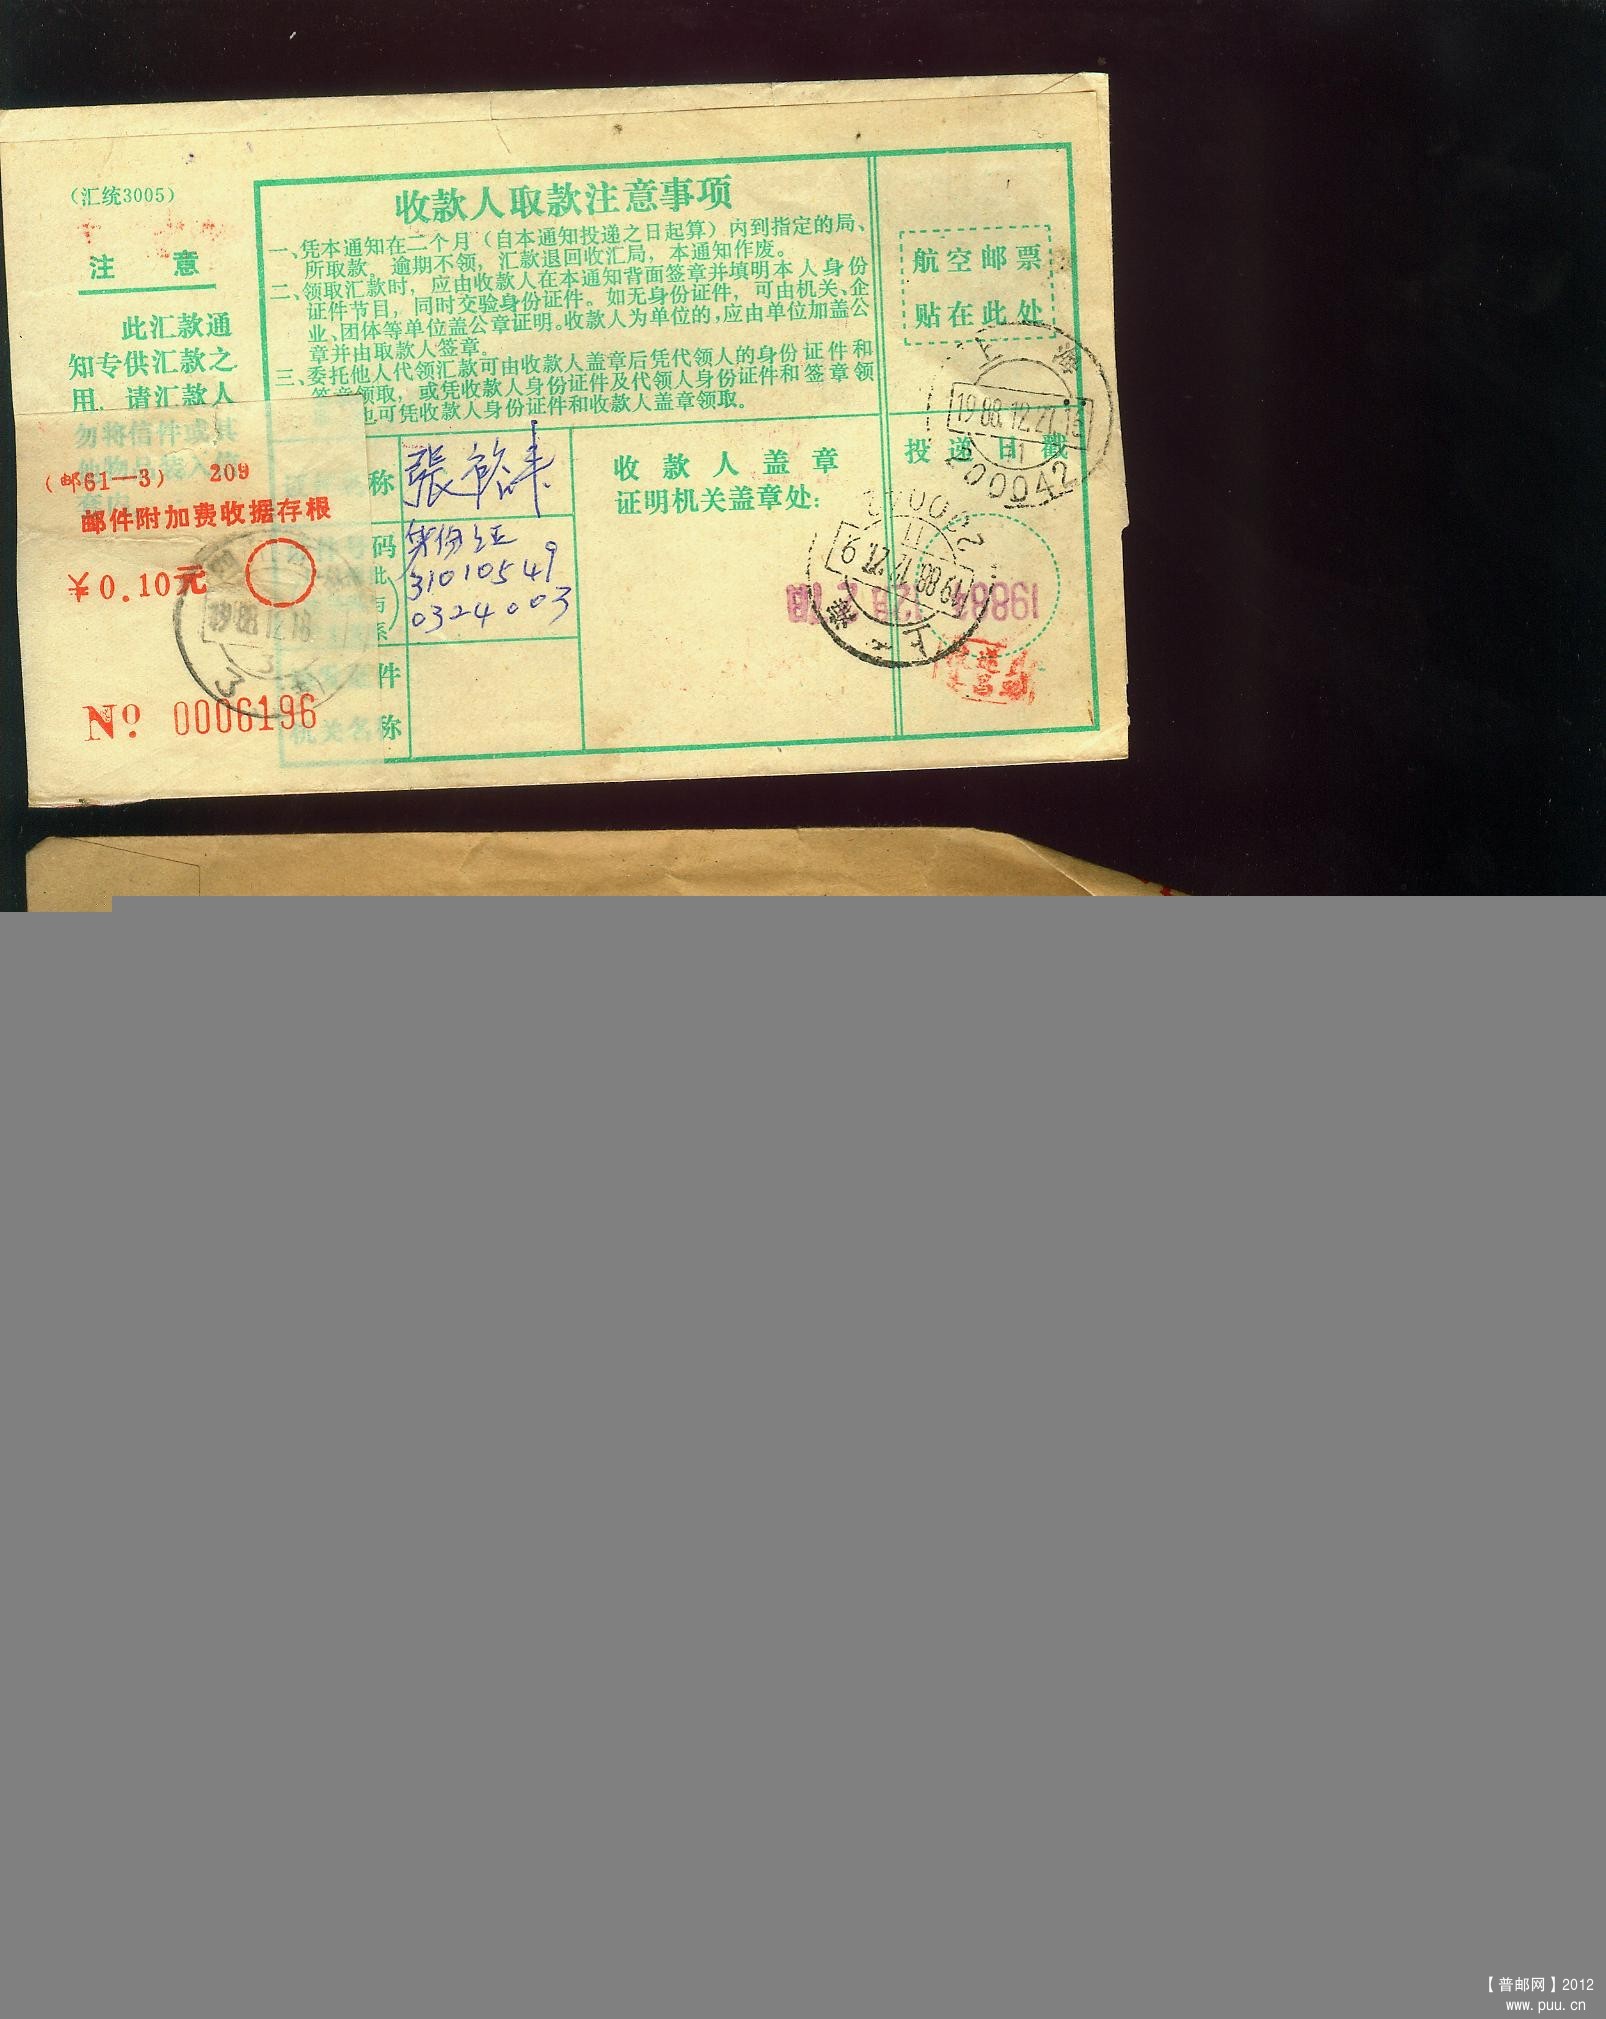 (汇统3005)
注 意
此汇款通
知专供汇款之
用，请汇款人
勿将信件或其
收款人取款注意事项
一、凭本通知在二个月（自本通知投递之日起算）内到指定的局、
所取款。逾期不领，汇款退回收汇局，本通知作废。
二、领取汇款时，应由收款人在本通知背面签章并填明本人身份
证件节目，同时交验身份证件。如无身份证件，可由机关、企
业、团体等单位盖公章证明。收款人为单位的，应由单位加盖公
章并由取款人签章。
三、委托他人代领汇款可由收款人盖章后凭代领人的身份证件和
签章领取，或凭收款人身份证件及代领人身份证件和签章领
也可凭收款人身份证件和收款人盖章领取。
航空邮票
贴在此处
投递日戳
上 海
1988.12.27.15
11
200042
(邮61—3) 209
邮件附加费收据存根
¥0.10元
1988.12.16
3
No 0006196
称
码
件
机关名称
身份证
收款人盖章
证明机关盖章处:
上 海
11
【普邮网】2012
www.puu.cn